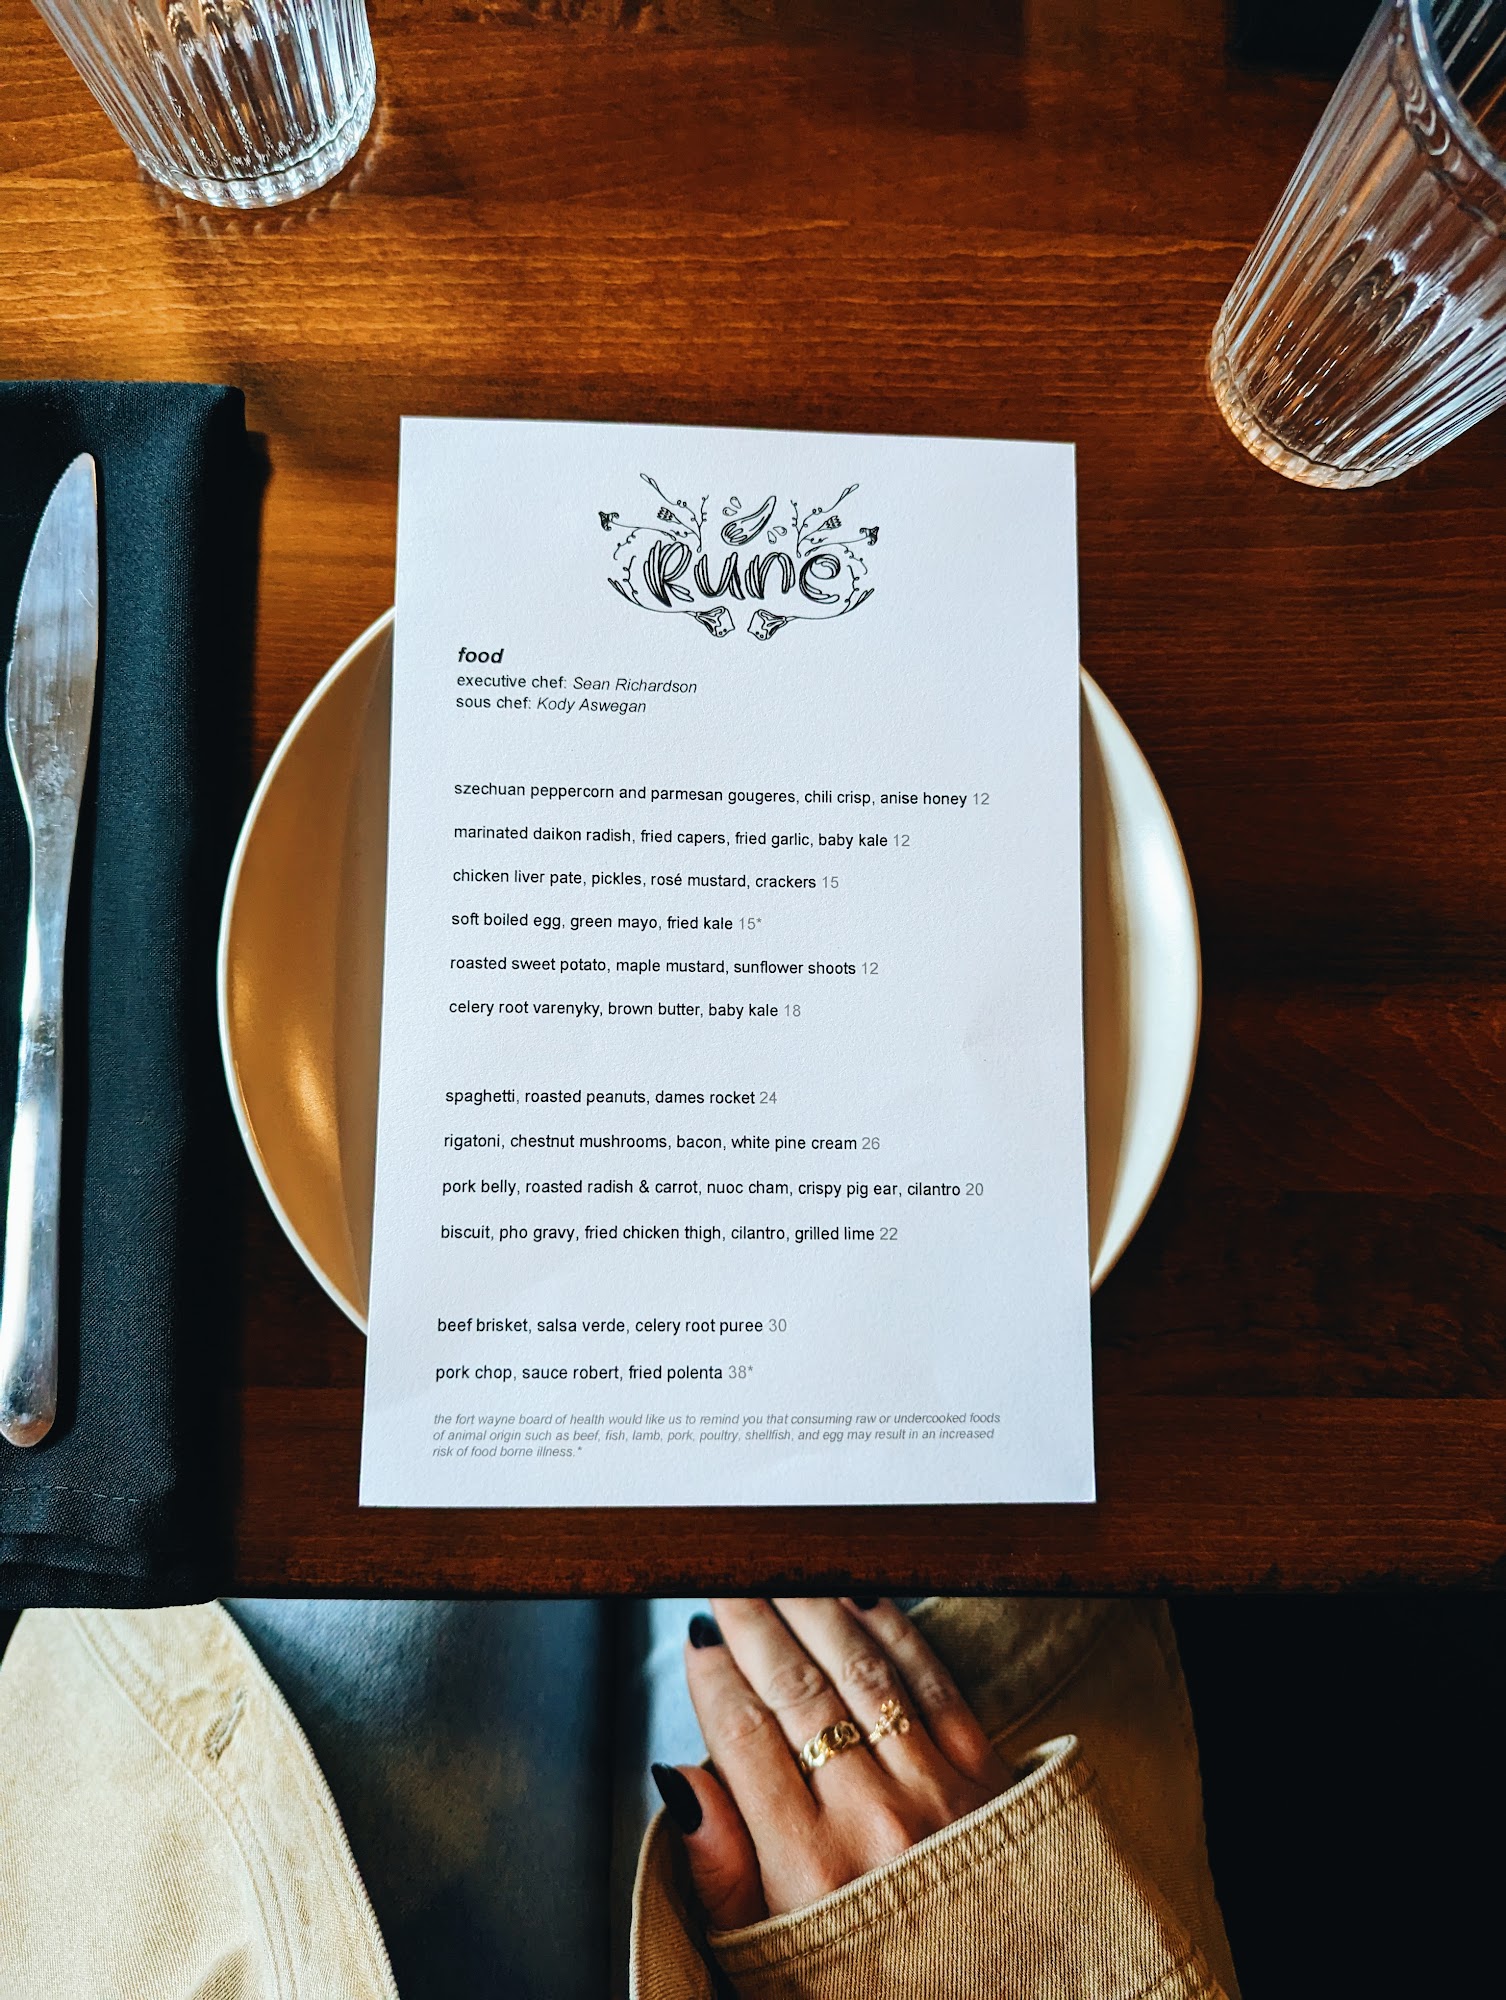 Rune
food
executive chef: Sean Richardson
sous chef: Kody Aswegan
szechuan peppercorn and parmesan gougeres, chili crisp, anise honey 12
marinated daikon radish, fried capers, fried garlic, baby kale 12
chicken liver pate, pickles, rosé mustard, crackers 15
soft boiled egg, green mayo, fried kale 15*
roasted sweet potato, maple mustard, sunflower shoots 12
celery root varenyky, brown butter, baby kale 18
spaghetti, roasted peanuts, dames rocket 24
rigatoni, chestnut mushrooms, bacon, white pine cream 26
pork belly, roasted radish & carrot, nuoc cham, crispy pig ear, cilantro 20
biscuit, pho gravy, fried chicken thigh, cilantro, grilled lime 22
beef brisket, salsa verde, celery root puree 30
pork chop, sauce robert, fried polenta 38*
the fort wayne board of health would like us to remind you that consuming raw or undercooked foods
of animal origin such as beef, fish, lamb, pork, poultry, shellfish, and egg may result in an increased
risk of food borne illness.*